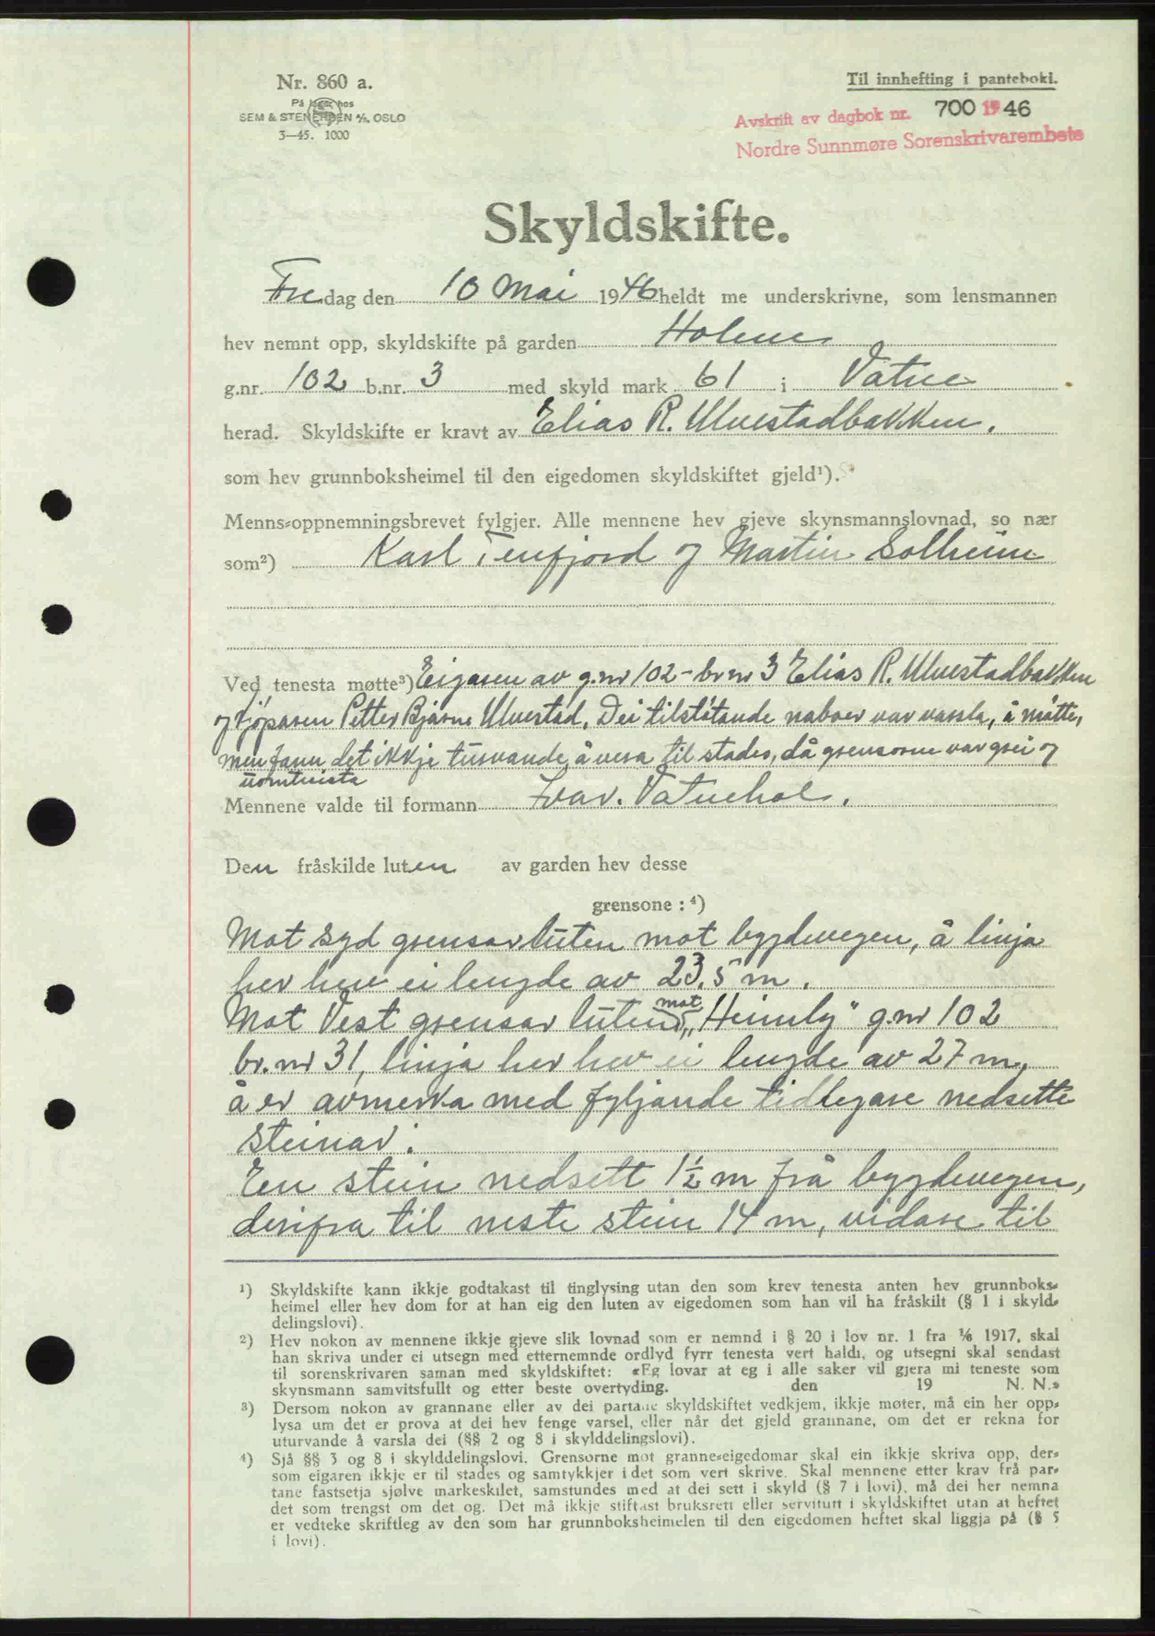 Nr. 860 a.
På lager hos
SEM & STENERSEN A/S, OSLO
3-45. 1000
Til innhefting i panteboki.
Avskrift av dagbok nr. 700 1946
Nordre Sunnmøre Sorenskrivarembete
Skyldskifte.
Fredag den 10 Mai 1946 heldt me underskrivne, som lensmannen
hev nemnt opp, skyldskifte på garden Holme
g.nr. 102 b.nr. 3 med skyld mark 61 i Vatne
herad. Skyldskifte er kravt av Elias R. Ulvestadbakken.
som hev grunnboksheimel til den eigedomen skyldskiftet gjeld¹).
Menns-oppnemningsbrevet fylgjer. Alle mennene hev gjeve skynsmannslovnad, so nær
som²) Karl Tenfjord og Martin Solheim
Ved tenesta møtte³) Eigaren av g.nr 102 - br.nr 3 Elias R. Ulvestadbakken
og kjøparen Petter Bjarne Ulvestad. Dei tilstøtande naboer var varsla, å møtte,
men fann det ikkje turvande å vera til stades, då grensorne var grei og
uomtvista
Mennene valde til formann Ivar. Vatnehol.
Den fråskilde luten av garden hev desse
grensone : ⁴)
Mot Syd grensar luten mot bygdevegen, å linja
her hev ei lengde av 23.5 m.
Mot Vest grensar luten mot „Heimly" g.nr 102
br. nr 31, linja her hev ei lengde av 27 m,
å er avmerka med fyljande tidlegare nedsette
steinar:
En stein nedsett 1½ m frå bygdevegen,
derifra til neste stein 14 m, vidare til
¹) Skyldskifte kann ikkje godtakast til tinglysing utan den som krev tenesta anten hev grunnboks-
heimel eller hev dom for at han eig den luten av eigedomen som han vil ha fråskilt (§ 1 i skyld-
delingslovi).
²) Hev nokon av mennene ikkje gjeve slik lovnad som er nemnd i § 20 i lov nr. 1 fra 1/6 1917, skal
han skriva under ei utsegn med etternemnde ordlyd fyrr tenesta vert haldi, og utsegni skal sendast
til sorenskrivaren saman med skyldskiftet: «Eg lovar at eg i alle saker vil gjera mi teneste som
skynsmann samvitsfullt og etter beste overtyding. den 19 N. N.»
³) Dersom nokon av grannane eller av dei partane skyldskiftet vedkjem, ikkje møter, må ein her opp-
lysa um det er prova at dei hev fenge varsel, eller når det gjeld grannane, om det er rekna for
uturvande å varsla dei (§§ 2 og 8 i skylddelingslovi).
⁴) Sjå §§ 3 og 8 i skylddelingslovi. Grensorne mot granne-eigedomar skal ein ikkje skriva opp, der-
som eigaren ikkje er til stades og samtykkjer i det som vert skrive. Skal mennene etter krav frå par-
tane fastsetja sjølve markeskilet, samstundes med at dei sett i skyld (§ 7 i lovi), må dei her nemna
det som trengst om det og. Det må ikkje stiftast bruksrett eller servitutt i skyldskiftet utan at heftet
er vedteke skriftleg av den som har grunnboksheimelen til den eigedomen heftet skal liggja på (§ 5
i lovi).